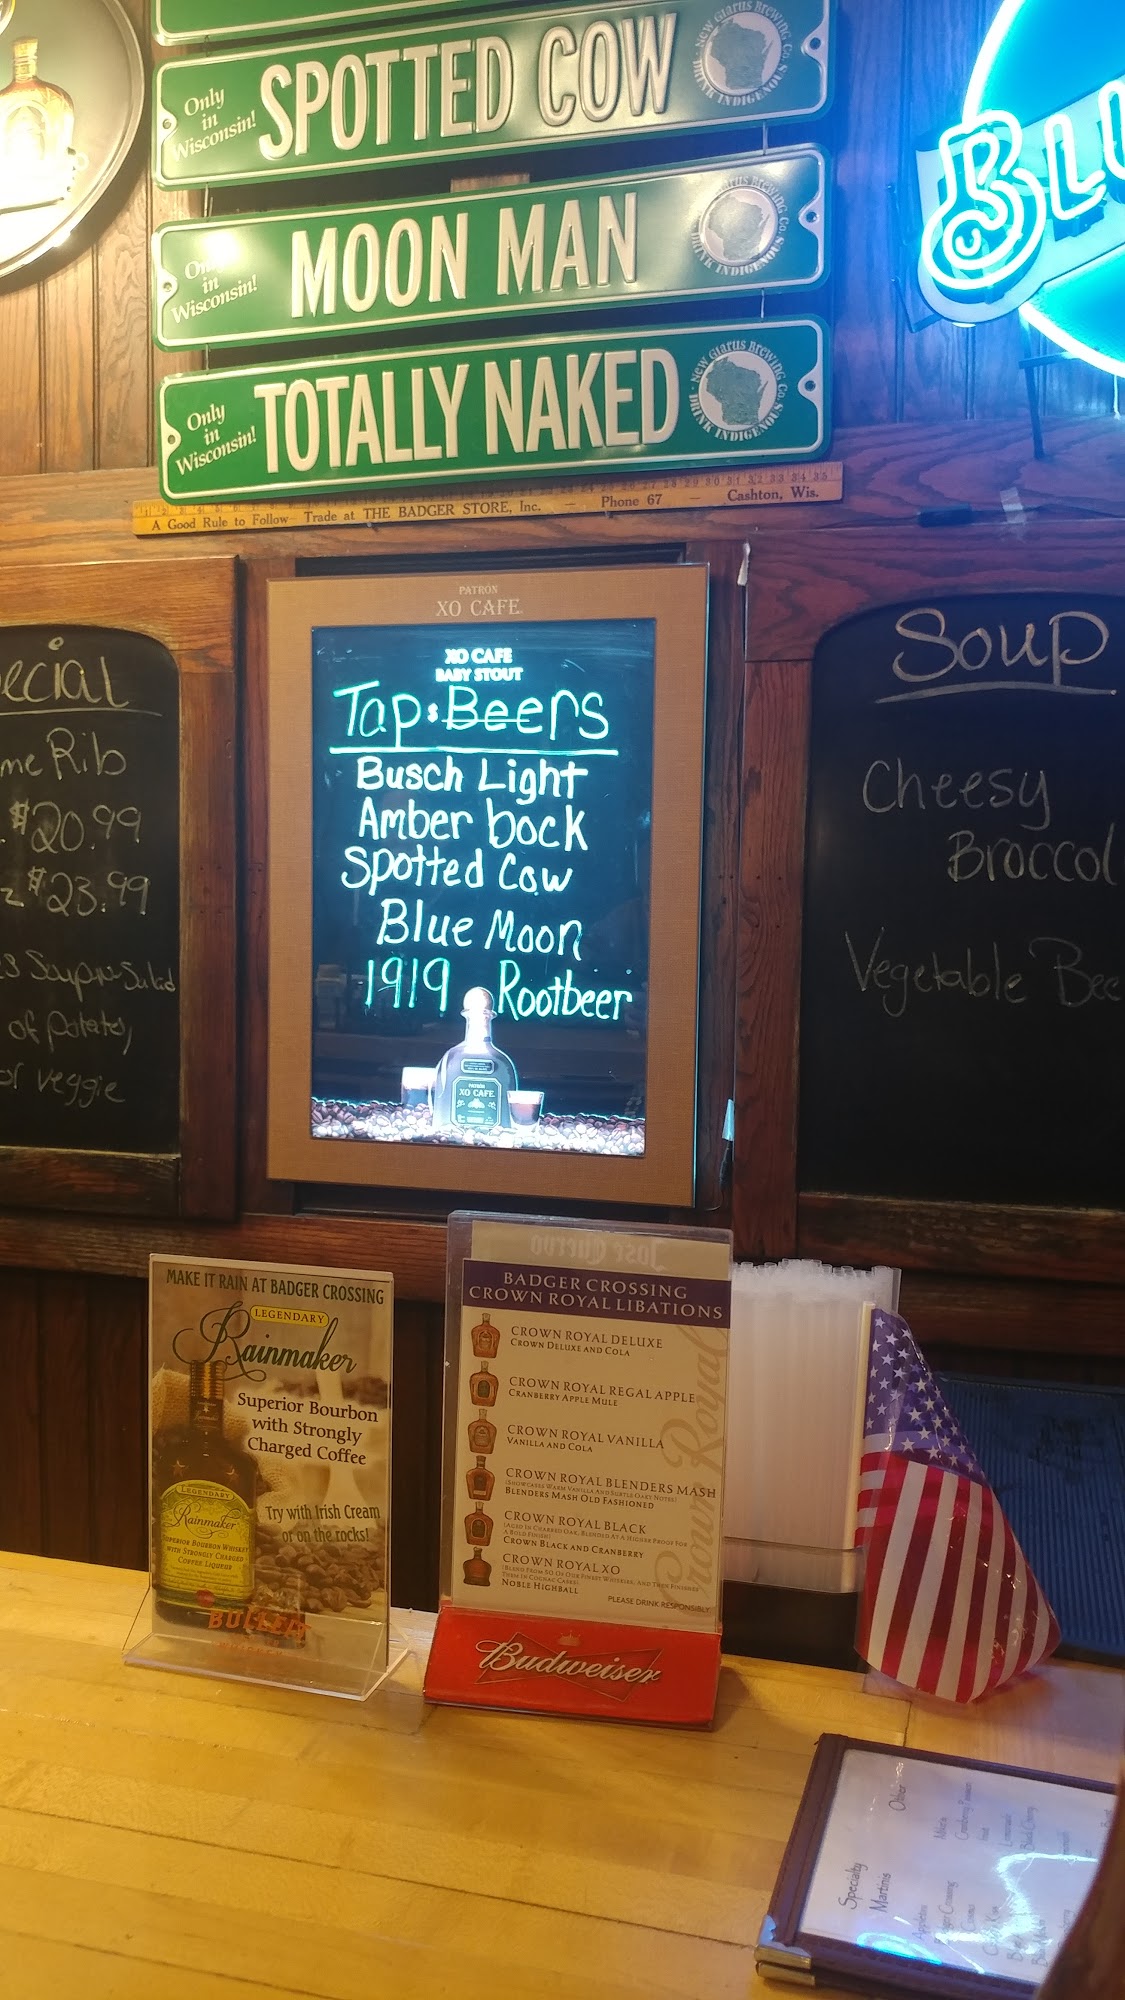 Only
in
Wisconsin!
SPOTTED COW
NEW GLARUS BREWING CO.
DRINK INDIGENOUS
Only
in
Wisconsin!
MOON MAN
New Glarus Brewing Co.
DRINK INDIGENOUS
Only
in
Wisconsin!
TOTALLY NAKED
New Glarus Brewing Co.
DRINK INDIGENOUS
A Good Rule to Follow – Trade at THE BADGER STORE, Inc. – Phone 67 – Cashton, Wis.
BLU
ecial
me Rib
$20.99
z $23.99
Soup or Salad
of potato,
or veggie
PATRÓN
XO CAFE
XO CAFE
BABY STOUT
Tap Beers
Busch Light
Amber bock
Spotted Cow
Blue Moon
1919 Rootbeer
PATRÓN
XO CAFE
Soup
Cheesy
Broccol
Vegetable Bee
MAKE IT RAIN AT BADGER CROSSING
LEGENDARY
Rainmaker
Superior Bourbon
with Strongly
Charged Coffee
Try with Irish Cream
or on the rocks!
LEGENDARY
Rainmaker
SUPERIOR BOURBON WHISKEY
WITH STRONGLY CHARGED
COFFEE LIQUEUR
BULLEIT
Jose Cuervo
BADGER CROSSING
CROWN ROYAL LIBATIONS
CROWN ROYAL DELUXE
CROWN DELUXE AND COLA
CROWN ROYAL REGAL APPLE
CRANBERRY APPLE MULE
CROWN ROYAL VANILLA
VANILLA AND COLA
CROWN ROYAL BLENDERS MASH
(SHOWCASES WARM VANILLA AND SUBTLE OAKY NOTES)
BLENDERS MASH OLD FASHIONED
CROWN ROYAL BLACK
(AGED IN CHARRED OAK, BLENDED AT A HIGHER PROOF FOR
A BOLD FINISH)
CROWN BLACK AND CRANBERRY
CROWN ROYAL XO
(BLEND FROM 50 OF OUR FINEST WHISKIES, AND THEN FINISHED
THEM IN COGNAC CASKS)
NOBLE HIGHBALL
PLEASE DRINK RESPONSIBLY
Crown Royal
Budweiser
Specialty
Martinis
Appletini
Badger Crossing
Cosmo
Other
Mike's
Cranberry Passion
Lemonade
Black Cherry